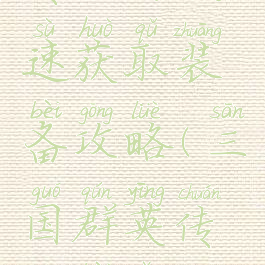 sù huò qǔ zhuāng
速获取装
bèi gōng lüè sān
备攻略(三
guó qún yīng chuán
国群英传